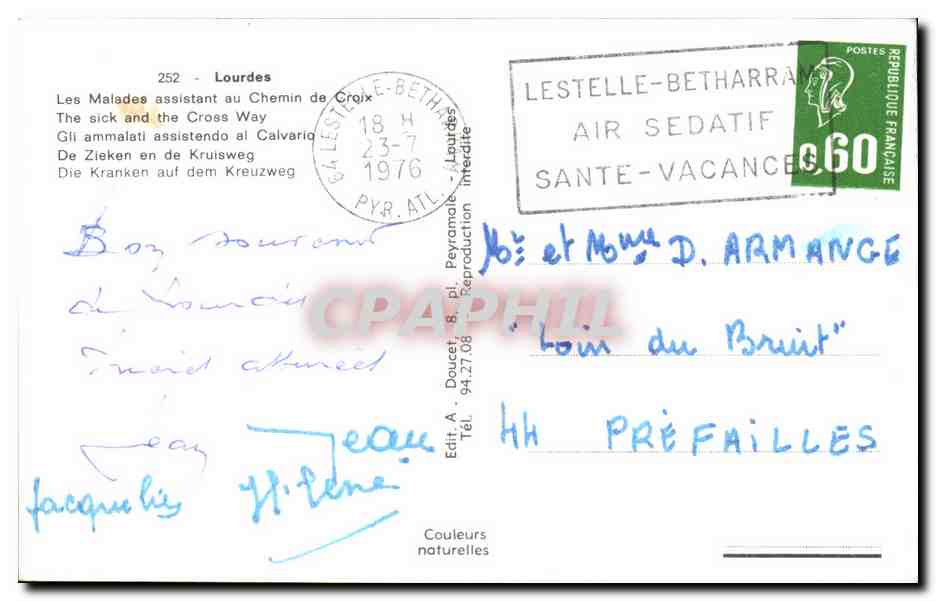 252 - Lourdes
Les Malades assistant au Chemin de Croix
The sick and the Cross Way
Gli ammalati assistendo al Calvario
De Zieken en de Kruisweg
Die Kranken auf dem Kreuzweg
64 LESTELLE-BETHARRAM
18 H
23-7
1976
PYR. ATL.
LESTELLE-BETHARRAM
AIR SEDATIF
SANTE-VACANCES
POSTES
REPUBLIQUE FRANÇAISE
0,60
Bon souvenir
de Lourdes
Jean
Jean
Jacqueline Hélène
Edit. A. Doucet, 8, pl. Peyramale, Lourdes
Tél. 94.27.08 - Reproduction interdite
Mr et Mme D. ARMANGE
"Loin du Bruit"
44 PRÉFAILLES
Couleurs
naturelles
CPAPHIL